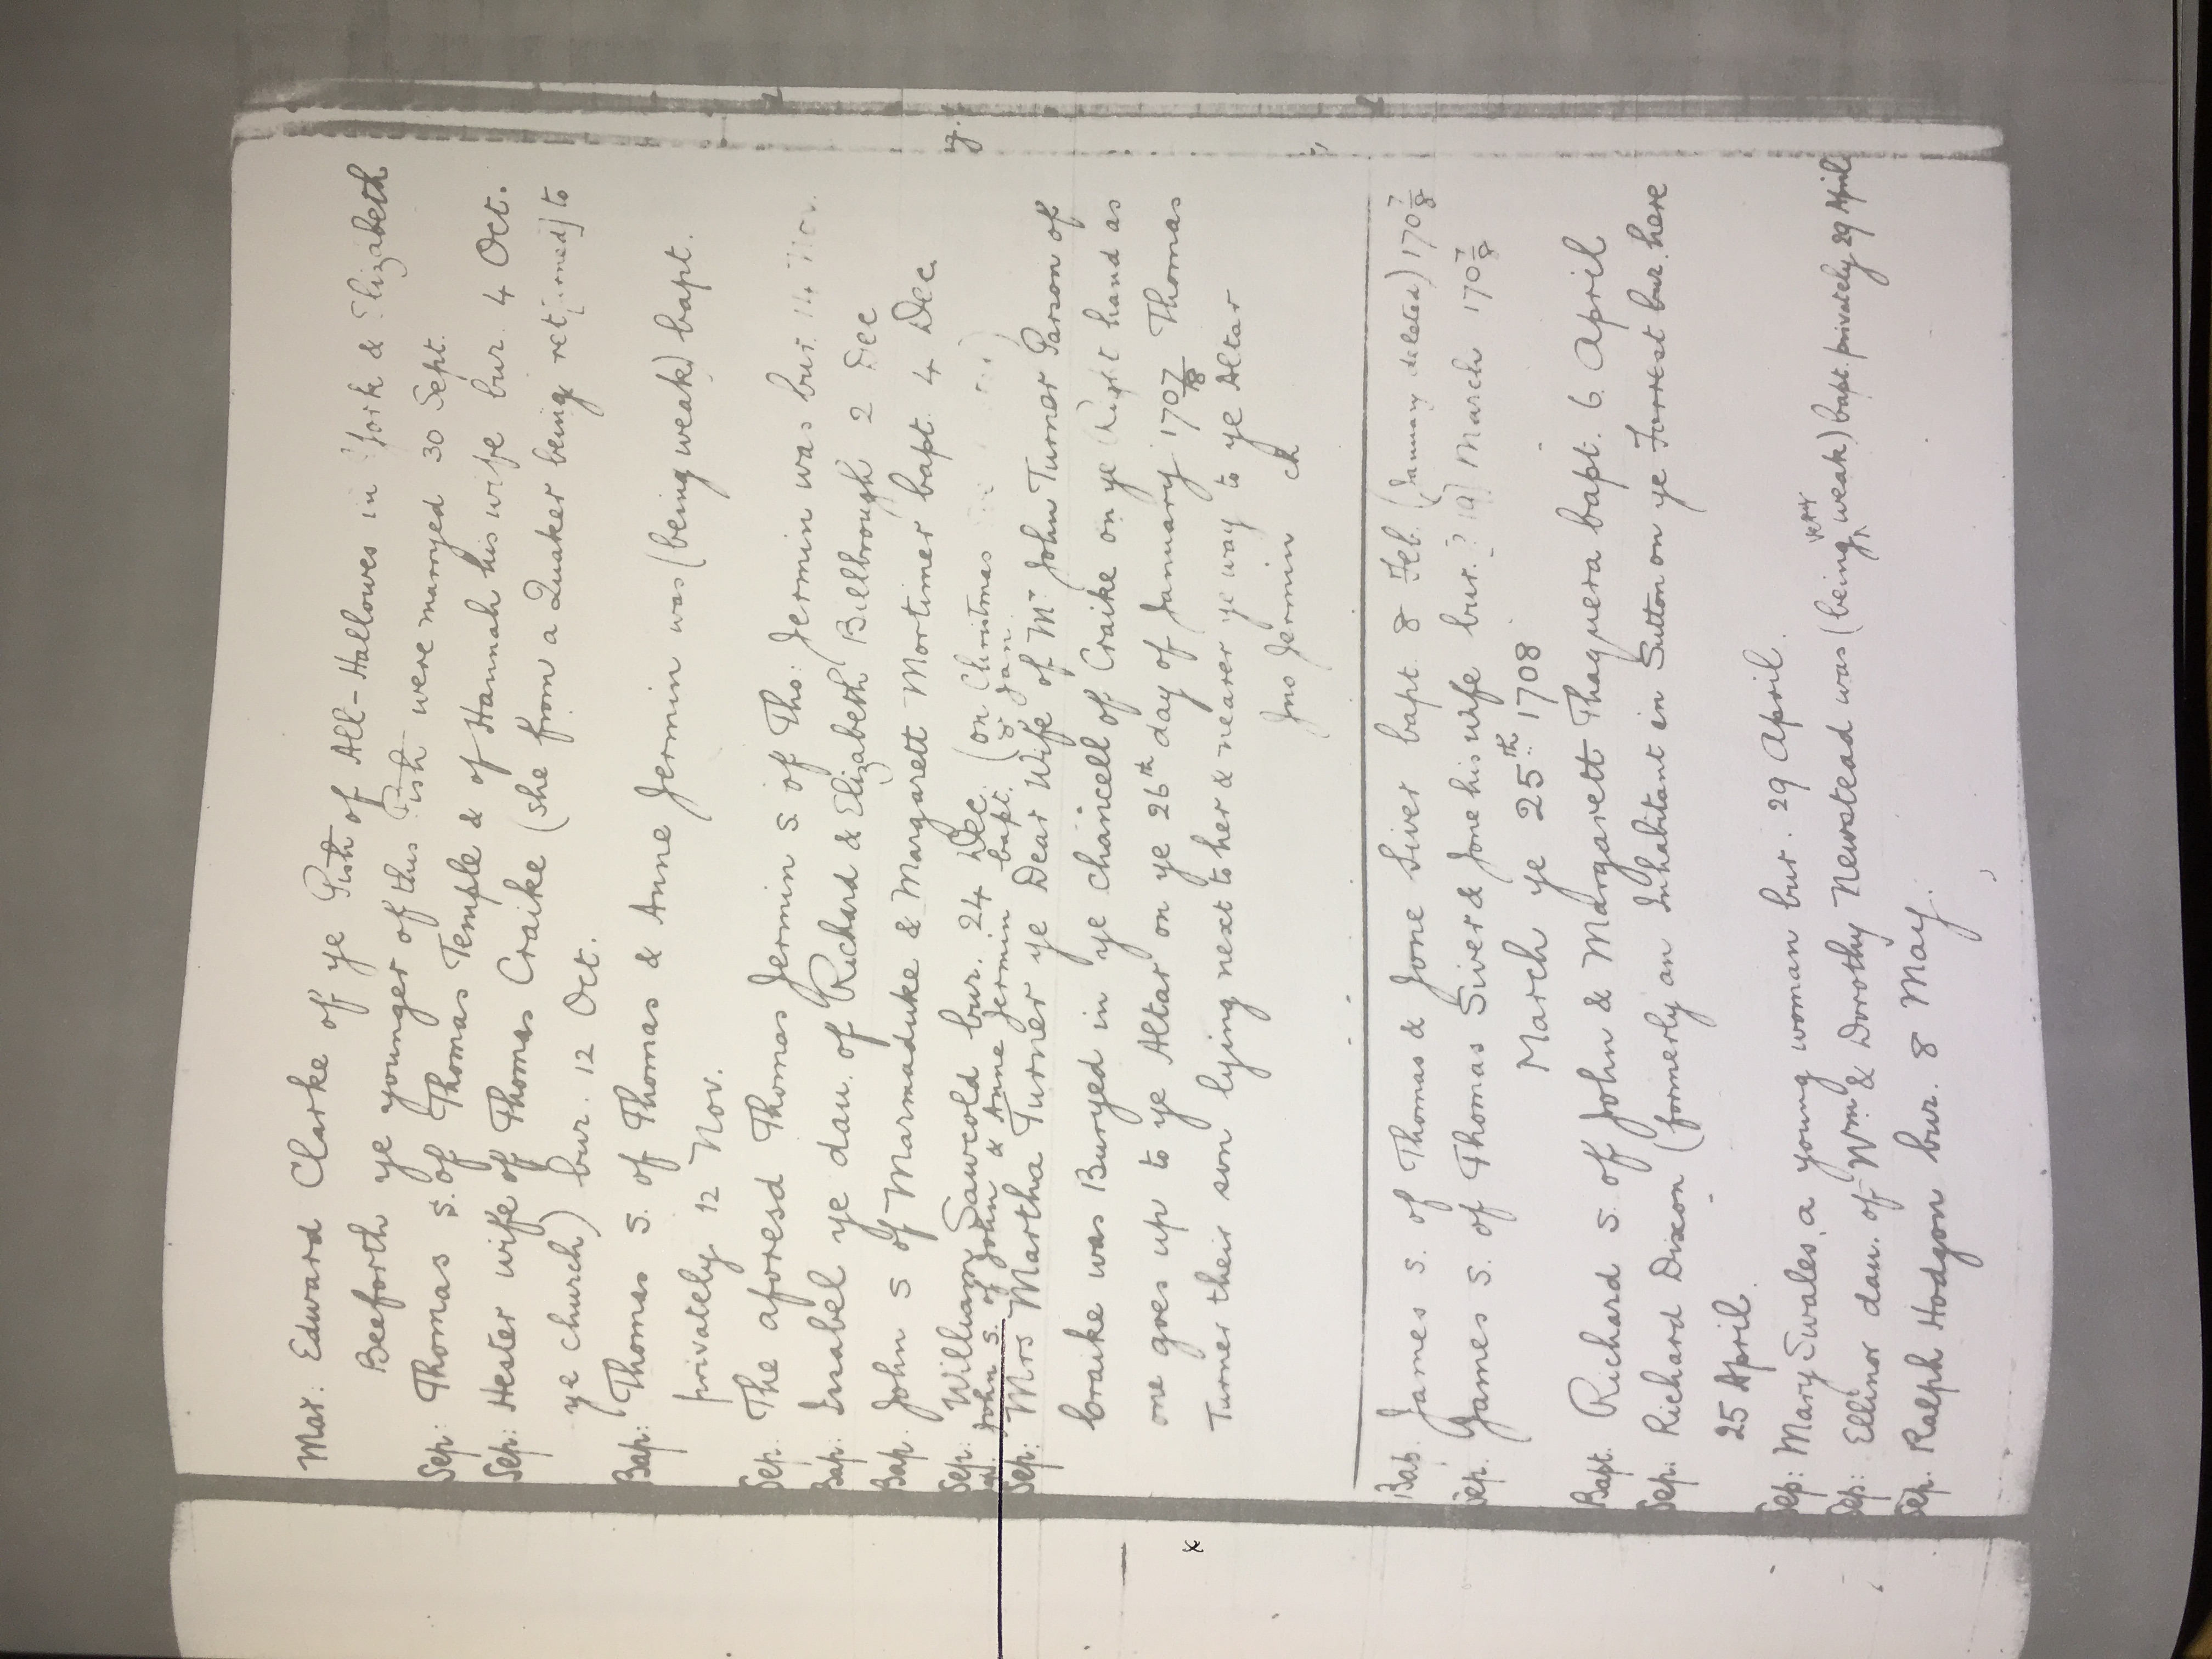 Mar: Edward Clarke of ye Pish of All-Hallowes in York & Elizabeth
Beeforth ye younger of this Pish were marryed 30 Sept.
Sep: Thomas s. of Thomas Temple & of Hannah his wife bur. 4 Oct.
Sep: Hester wife of Thomas Craike (she from a Quaker being ret[urned] to
ye church) bur. 12 Oct.
Bap: Thomas s. of Thomas & Anne Jermin was (being weak) bapt.
privately 12 Nov.
Sep. The aforesd Thomas Jermin s. of Tho: Jermin was bur. 14 Nov.
Bap: Isabel ye dau. of Richard & Elizabeth Billbrough 2 Dec
Bap. John s of Marmaduke & Margarett Mortimer bapt. 4 Dec.
Sep. William Sawcold bur. 24 Dec. (on Christmas
John s. of John & Anne Jermin bapt. 8 Jan.
Sep: Mrs Martha Turner ye Dear Wife of Mr John Turner Parson of
Craike was Buryed in ye chancell of Craike on ye Right hand as
one goes up to ye Altar on ye 26th day of January 170 7/8 Thomas
Turner their son lying next to her & nearer ye way to ye Altar
Jno Jermin ck
Bap. James s. of Thomas & Jone Siver bapt. 8 Feb. (January deleted) 170 7/8
Sep. James s. of Thomas Siver & Jone his wife bur. [? 19] March 170 7/8
March ye 25th 1708
Bapt. Richard s. of John & Margarett Thaquera bapt. 6. April
Sep: Richard Dixon (formerly an Inhabitant in Sutton on ye Forrest bur. here
25 April.
Sep: Mary Swales, a young woman bur. 29 April.
Sep: Ellinor dau. of Wm & Dorothy Newstead was (being very weak) bapt. privately 29 April
Sep. Ralph Hodgon bur. 8 May.
x